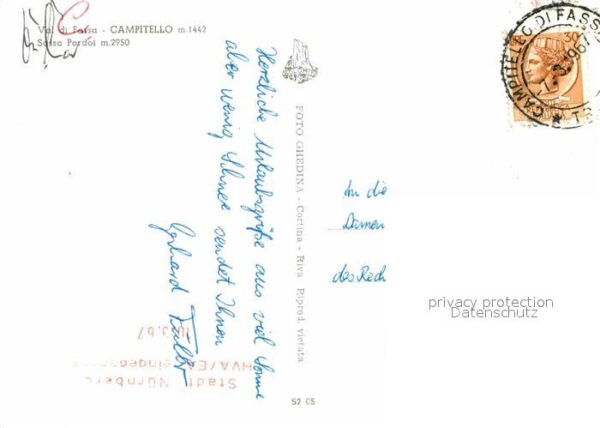 Val di Fassa - CAMPITELLO m.1442
Sasso Pordoi m.2950
Herzliche Urlaubsgrüße aus viel Sonne
aber wenig Schnee sendet Ihnen
Gerhard
FOTO GHEDINA - Cortina - Riva Riprod. vietata
An die
Damen
des Rech
privacy protection
Datenschutz
CAMPITELLO DI FASSA
30
Stadt Nürnberg
HVA/E
S2 C5